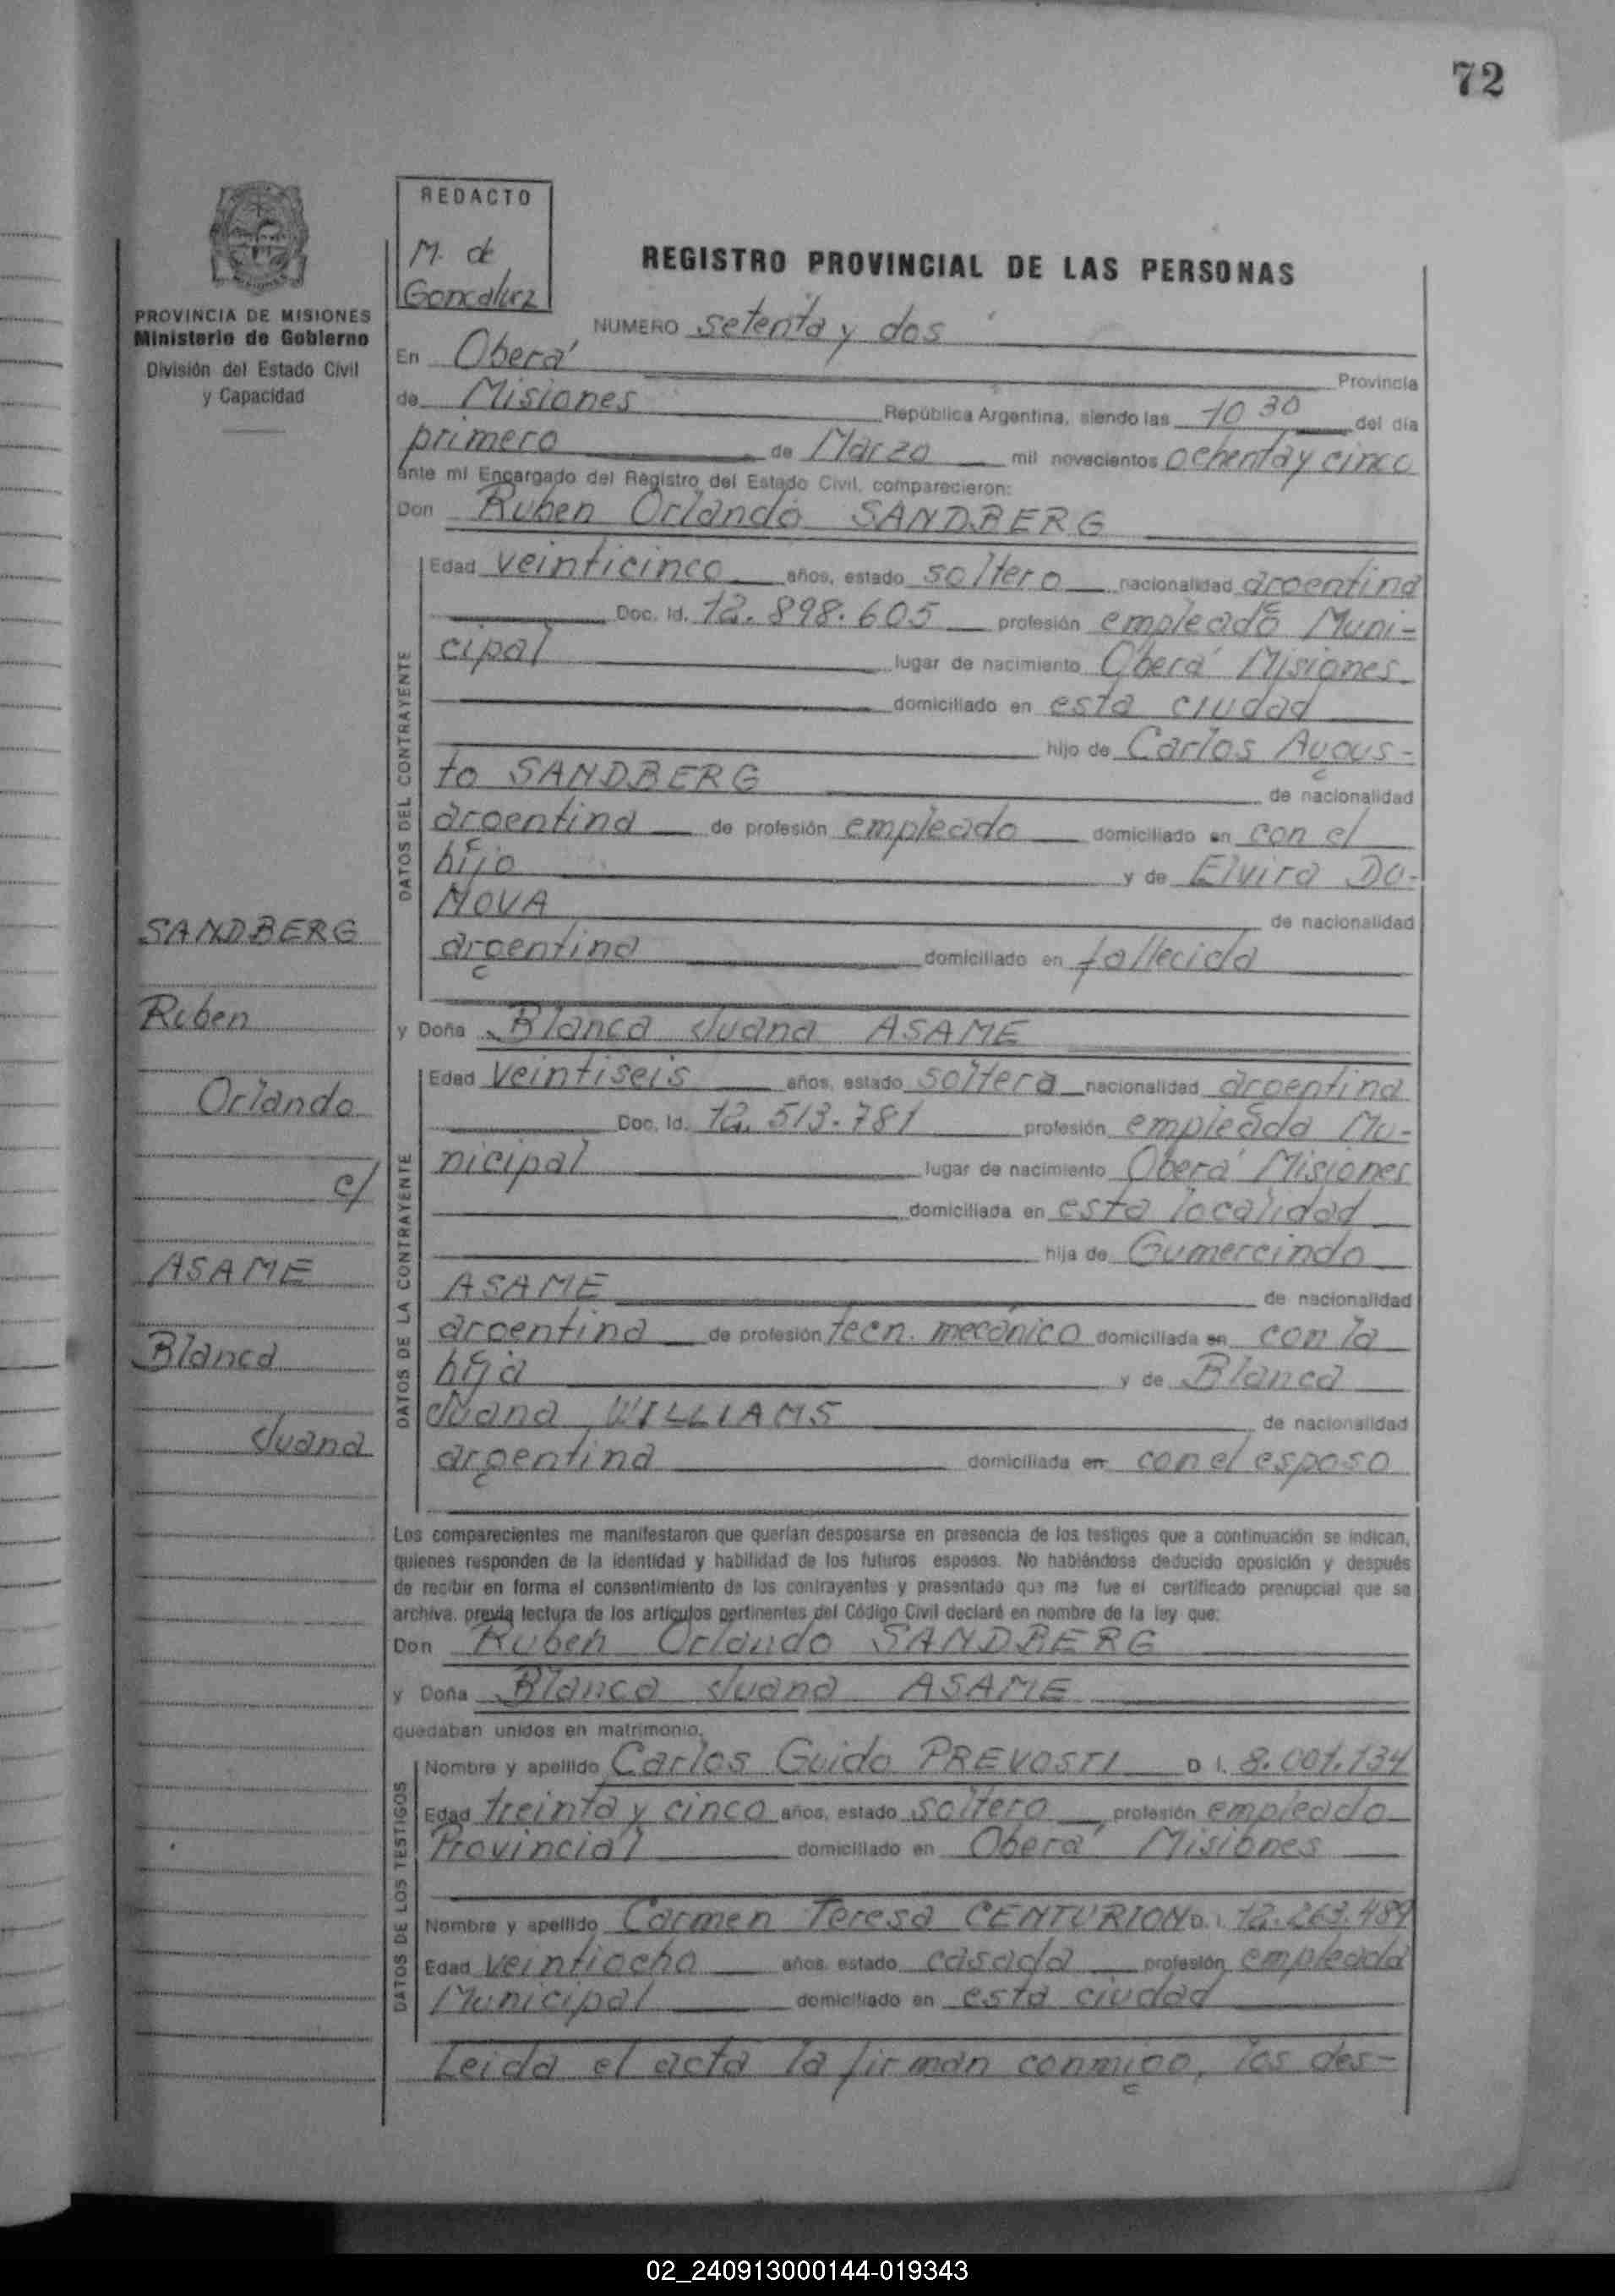 72
REDACTO
M. de
Goncalvez
PROVINCIA DE MISIONES
Ministerio de Gobierno
División del Estado Civil
y Capacidad
REGISTRO PROVINCIAL DE LAS PERSONAS
NUMERO setenta y dos
En Oberá Provincia
de Misiones República Argentina, siendo las 10 30 del día
primero de Marzo mil novecientos ochenta y cinco
ante mí Encargado del Registro del Estado Civil, comparecieron:
Don Ruben Orlando SANDBERG
DATOS DEL CONTRAYENTE
Edad veinticinco años, estado soltero nacionalidad argentina
Doc. Id. 12.898.605 profesión empleado Muni-
cipal lugar de nacimiento Oberá Misiones
domiciliado en esta ciudad
hijo de Carlos Augus-
to SANDBERG de nacionalidad
argentina de profesión empleado domiciliado en con el
hijo y de Elvira DA-
NOVA de nacionalidad
argentina domiciliado en fallecida
y Doña Blanca Juana ASAME
DATOS DE LA CONTRAYENTE
Edad veintiseis años, estado soltera nacionalidad argentina
Doc. Id. 12.513.781 profesión empleada Mu-
nicipal lugar de nacimiento Oberá Misiones
domiciliada en esta localidad
hija de Gumercindo
ASAME de nacionalidad
argentina de profesión tecn. mecánico domiciliada en con la
hija y de Blanca
Juana WILLIAMS de nacionalidad
argentina domiciliada en con el esposo
SANDBERG
Ruben
Orlando
c/
ASAME
Blanca
Juana
Los comparecientes me manifestaron que querían desposarse en presencia de los testigos que a continuación se indican,
quienes responden de la identidad y habilidad de los futuros esposos. No habiéndose deducido oposición y después
de recibir en forma el consentimiento de los contrayentes y presentado que me fue el certificado prenupcial que se
archiva, previa lectura de los artículos pertinentes del Código Civil declaré en nombre de la ley que:
Don Ruben Orlando SANDBERG
y Doña Blanca Juana ASAME
quedaban unidos en matrimonio.
DATOS DE LOS TESTIGOS
Nombre y apellido Carlos Guido PREVOSTI D. I. 8.001.134
Edad treinta y cinco años, estado soltero profesión empleado
Provincial domiciliado en Oberá Misiones
Nombre y apellido Carmen Teresa CENTURION D. I. 12.263.489
Edad veintiocho años, estado casada profesión empleada
Municipal domiciliado en esta ciudad
Leida el acta la firman conmigo, los des-
02_240913000144-019343